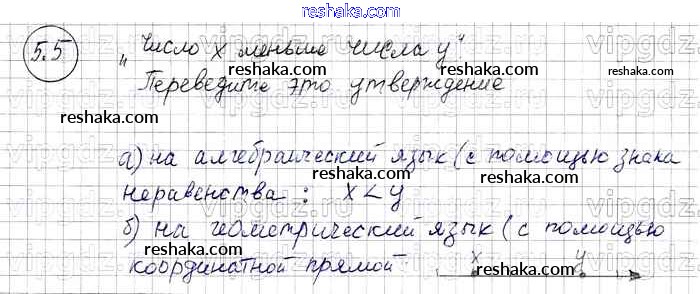 reshaka.com
5.5 „Число x меньше числа y"
reshaka.com
Переведите это утверждение
reshaka.com reshaka.com
а) на алгебраический язык (с помощью знака
reshaka.com reshaka.com
неравенства : x < y
б) на геометрический язык (с помощью
reshaka.com reshaka.com
координатной прямой x y
vipgdz